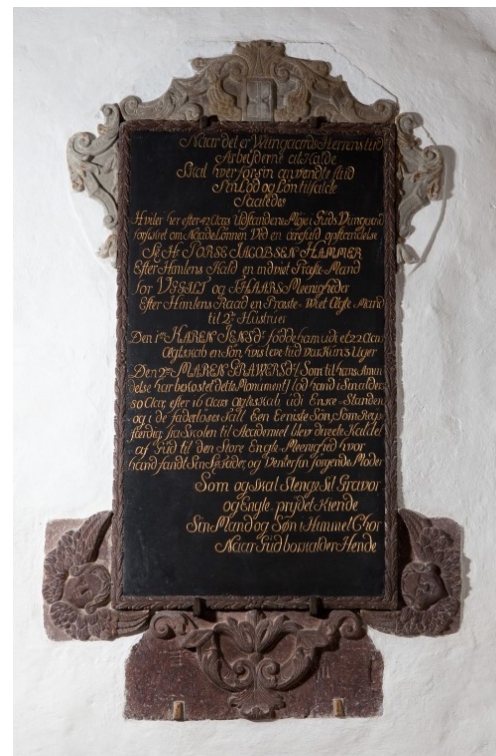 Naar det er Wiingaards Herrens tid
Arbeyderne at Kalde
Skal hver for sin anvendte flid
Sin Lod og Lön tilfalde
Saaledes
Hviler her efter 42 Aars Udstandene Möje i Guds Viingaard
forsikret om Naade Lönnen Ved en ærefuld opstandelse
Sl. Hr TORSE JACOBSEN HAMMER
Efter Himlens Kald en indviet Præste-Mand
for VISSALT og Meenigheder
Efter Himlens Raad en Præste-Viet Ægte Mand
til 2de Hustruer
Den 1te KAREN JENS Dr födde ham udi et 22 Aars
Ægteskab en Sön, hvis leve tid var Kun 3 Uger
Den 2den MAREN GRAWERS Dr Som til hans Amin
delse har bekostet dette Monument lod hand i Sin alders
50 Aar, efter 16 Aars Ægteskab udi Enke-Standen
og i de faderlöses Tall Een Eeniste Sön, Som Reys
færdig fra Skolen til Academiet blev dennete Kaldet
af Gud til den Store Engle-Meenighed hvor
hand fandt Sin og Venter Sin sörgende Moder
Som og skal
og Engle prydet Kiende
Sin Mand og Sön i Himmel Chor
Naar Gud bortkalder Hende